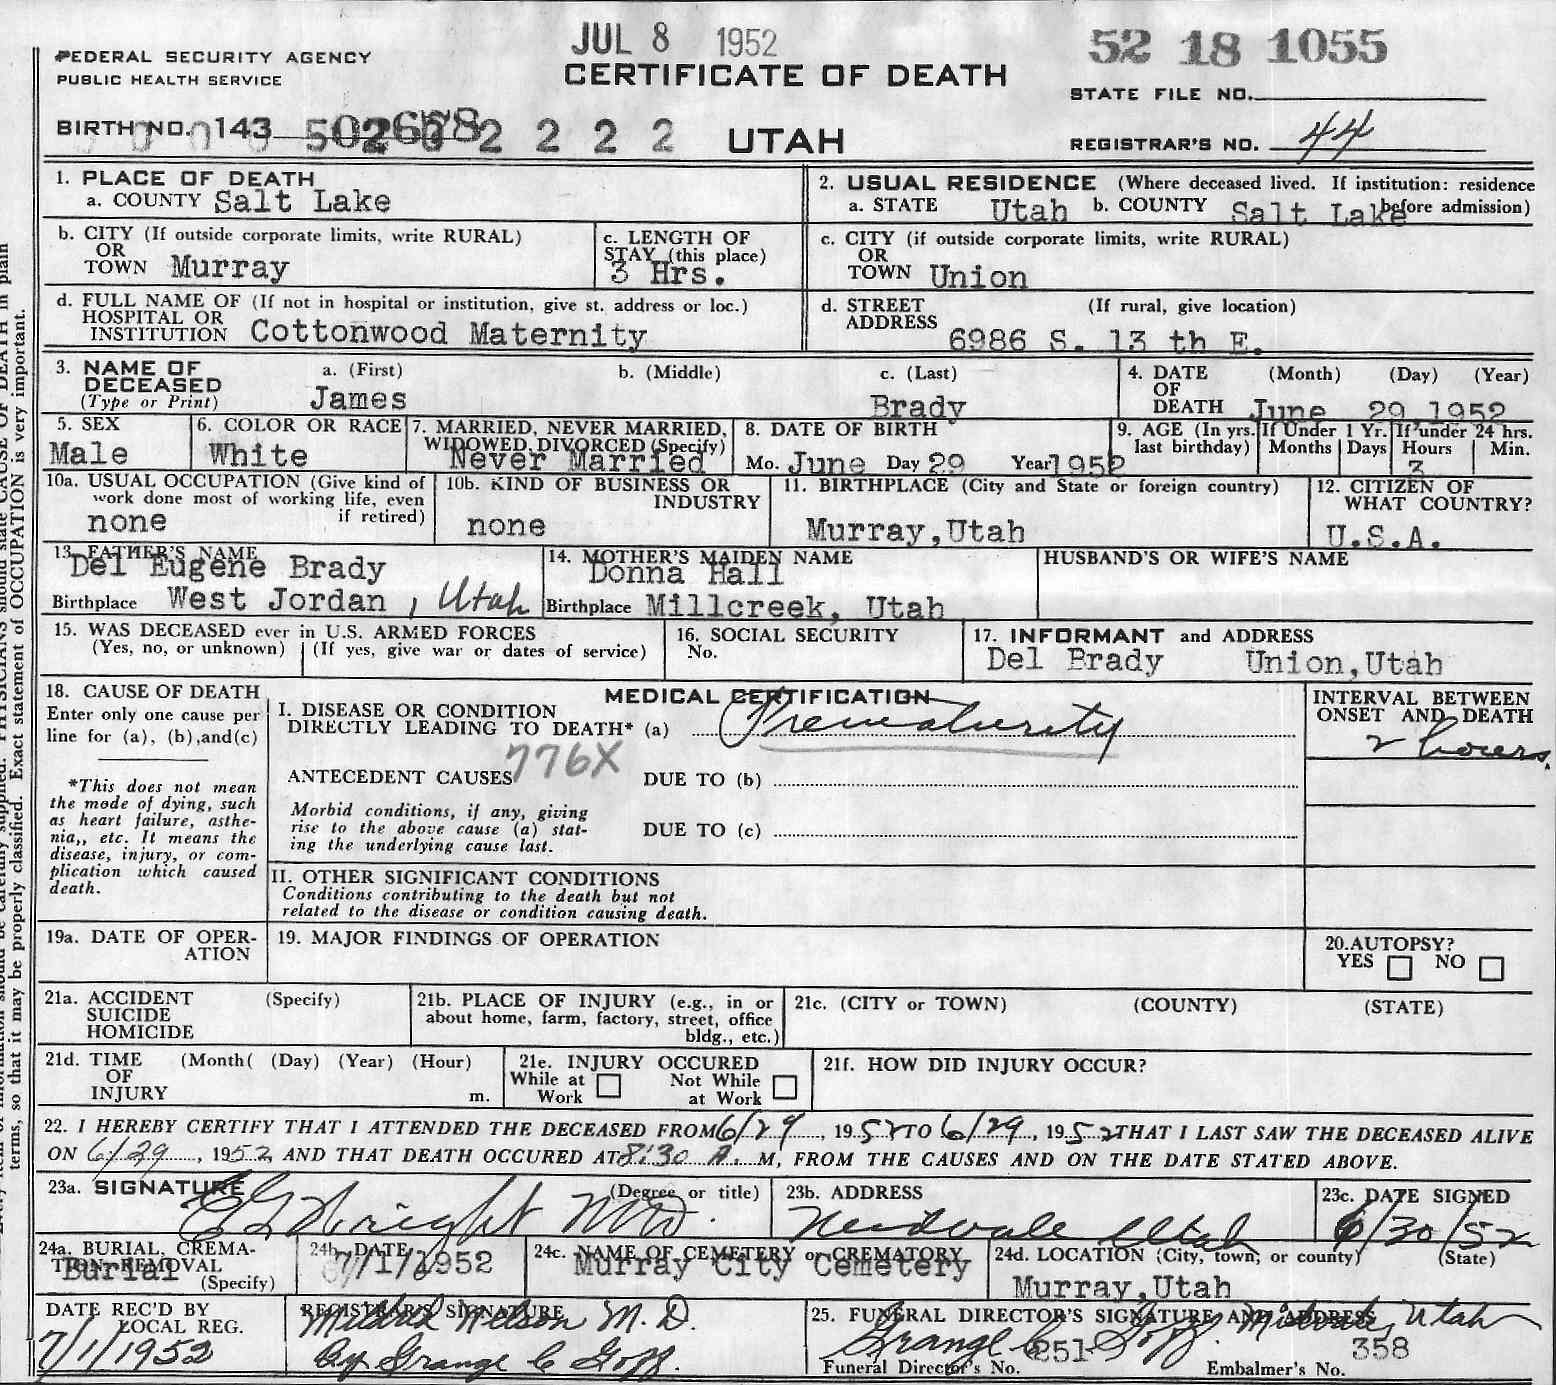 JUL 8 1952
52 18 1055
FEDERAL SECURITY AGENCY
PUBLIC HEALTH SERVICE
CERTIFICATE OF DEATH
STATE FILE NO.
BIRTH NO. 143
2 2 2 2
UTAH
REGISTRAR'S NO. 44
1. PLACE OF DEATH
a. COUNTY Salt Lake
2. USUAL RESIDENCE (Where deceased lived. If institution: residence before admission)
a. STATE Utah b. COUNTY Salt Lake
b. CITY (If outside corporate limits, write RURAL)
OR
TOWN Murray
c. LENGTH OF
STAY (this place)
3 Hrs.
c. CITY (if outside corporate limits, write RURAL)
OR
TOWN Union
d. FULL NAME OF (If not in hospital or institution, give st. address or loc.)
HOSPITAL OR
INSTITUTION Cottonwood Maternity
d. STREET (If rural, give location)
ADDRESS
6986 S. 13 th E.
3. NAME OF
DECEASED
(Type or Print)
a. (First)
James
b. (Middle)
c. (Last)
Brady
4. DATE (Month) (Day) (Year)
OF
DEATH June 29 1952
5. SEX
Male
6. COLOR OR RACE
White
7. MARRIED, NEVER MARRIED,
WIDOWED, DIVORCED (Specify)
Never Married
8. DATE OF BIRTH
Mo. June Day 29 Year 1952
9. AGE (In yrs. last birthday)
If Under 1 Yr.
Months Days
If under 24 hrs.
Hours Min.
3
10a. USUAL OCCUPATION (Give kind of
work done most of working life, even
if retired)
none
10b. KIND OF BUSINESS OR
INDUSTRY
none
11. BIRTHPLACE (City and State or foreign country)
Murray,Utah
12. CITIZEN OF
WHAT COUNTRY?
U.S.A.
13. FATHER'S NAME
Del Eugene Brady
Birthplace West Jordan , Utah
14. MOTHER'S MAIDEN NAME
Donna Hall
Birthplace Millcreek, Utah
HUSBAND'S OR WIFE'S NAME
15. WAS DECEASED ever in U.S. ARMED FORCES
(Yes, no, or unknown) (If yes, give war or dates of service)
16. SOCIAL SECURITY
No.
17. INFORMANT and ADDRESS
Del Brady Union,Utah
18. CAUSE OF DEATH
Enter only one cause per
line for (a), (b),and(c)
*This does not mean
the mode of dying, such
as heart failure, asthe-
nia,, etc. It means the
disease, injury, or com-
plication which caused
death.
MEDICAL CERTIFICATION
I. DISEASE OR CONDITION
DIRECTLY LEADING TO DEATH* (a) Prematurity
776X
ANTECEDENT CAUSES DUE TO (b)
Morbid conditions, if any, giving
rise to the above cause (a) stat-
ing the underlying cause last.
DUE TO (c)
INTERVAL BETWEEN
ONSET AND DEATH
2 hours.
II. OTHER SIGNIFICANT CONDITIONS
Conditions contributing to the death but not
related to the disease or condition causing death.
19a. DATE OF OPER-
ATION
19. MAJOR FINDINGS OF OPERATION
20.AUTOPSY?
YES NO
21a. ACCIDENT (Specify)
SUICIDE
HOMICIDE
21b. PLACE OF INJURY (e.g., in or
about home, farm, factory, street, office
bldg., etc.)
21c. (CITY or TOWN) (COUNTY) (STATE)
21d. TIME (Month( (Day) (Year) (Hour)
OF
INJURY m.
21e. INJURY OCCURED
While at Work Not While at Work
21f. HOW DID INJURY OCCUR?
22. I HEREBY CERTIFY THAT I ATTENDED THE DECEASED FROM 6/29, 1952 TO 6/29, 1952 THAT I LAST SAW THE DECEASED ALIVE
ON 6/29, 1952 AND THAT DEATH OCCURED AT 8:30 A. M, FROM THE CAUSES AND ON THE DATE STATED ABOVE.
23a. SIGNATURE (Degree or title)
Wright MD.
23b. ADDRESS
Utah
23c. DATE SIGNED
6/30/52
24a. BURIAL, CREMA-
TION, REMOVAL
(Specify)
Burial
24b. DATE
7/1/1952
24c. NAME OF CEMETERY or CREMATORY
Murray City Cemetery
24d. LOCATION (City, town, or county) (State)
Murray,Utah
DATE REC'D BY
LOCAL REG.
7/1/1952
REGISTRAR'S SIGNATURE
Mildred Nelson M.D.
By Grange C Goff.
25. FUNERAL DIRECTOR'S SIGNATURE AND ADDRESS
Grange C Goff. Midvale, Utah
Funeral Director's No. 251
Embalmer's No. 358
terms, so that it may be properly classified. Exact statement of OCCUPATION is very important.